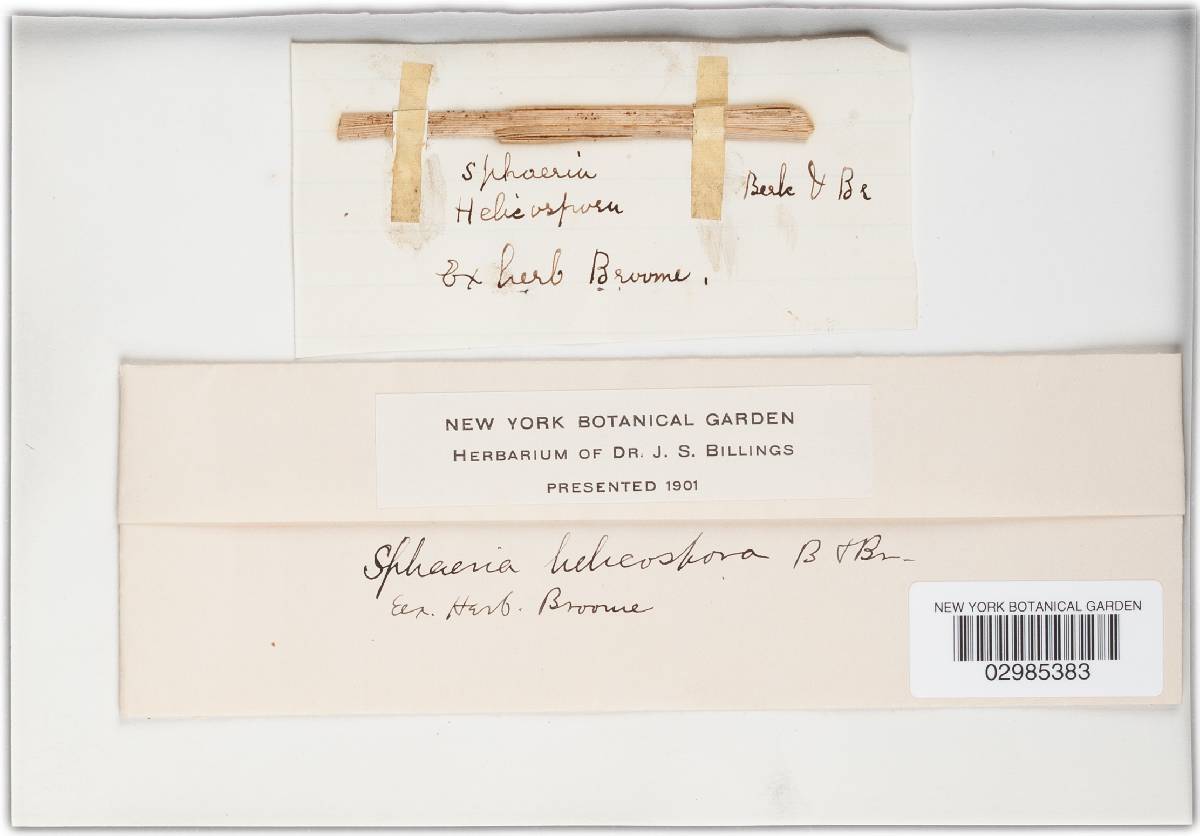 Sphaeria
Helicospora
Berk & Br
Ex herb Broome.
NEW YORK BOTANICAL GARDEN
HERBARIUM OF DR. J. S. BILLINGS
PRESENTED 1901
Sphaeria helicospora B & Br.
Ex. Herb. Broome
NEW YORK BOTANICAL GARDEN
02985383